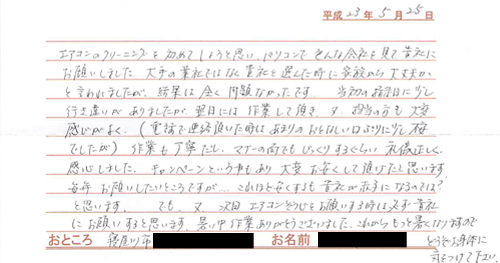 平成23年5月25日
エアコンのクリーニングを初めてしようと思い、パソコンで色んな会社を見て貴社に
お願いしました。大手の業社ではなく貴社を選んだ時に家族から大丈夫か
と言われましたが、結果は全く問題なかったです。当初の指示日に少し
行き違いがありましたが、翌日には作業して頂き、又、担当の方も大変
感じがよく、(電話で連絡頂いた時はあまりのおとなしい口ぶりに少し不安
でしたが)作業も丁寧だし、マナーの面でもびっくりするぐらい礼儀正しく、
感心しました。キャンペーンという事もあり大変お安くして頂けたと思います。
毎年お願いしたいところですが…これほど安くすると貴社が赤字になるのでは?
と思います。でも、又、次回エアコンそうじをお願いする時は必ず貴社
にお願いすると思います。暑い中作業ありがとうございました。これからもっと暑くなりますので
おところ 寝屋川市 お名前 どうぞお身体に
気をつけて下さい。